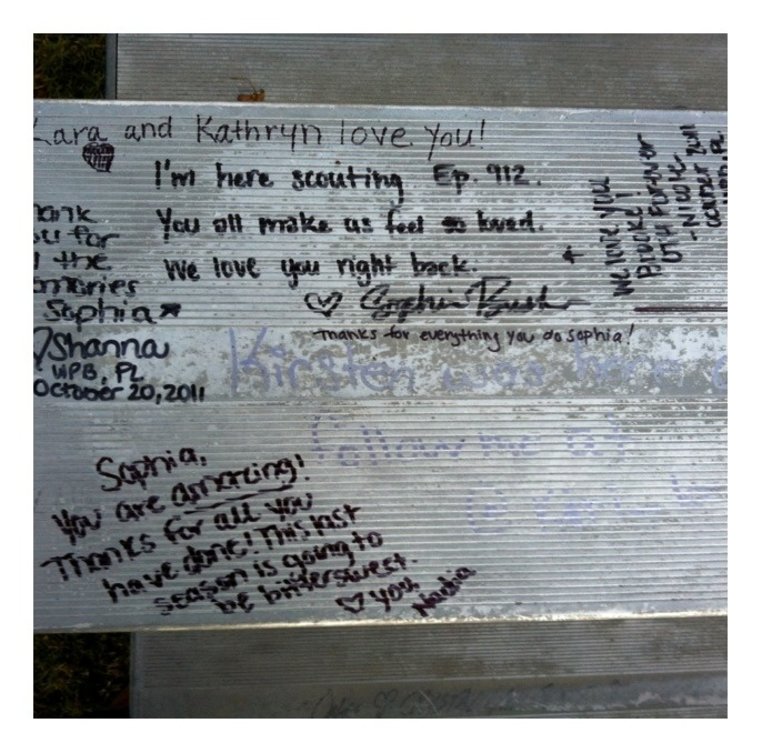 Kara and Kathryn love you!
I'm here scouting Ep. 912.
You all make us feel so loved.
We love you right back.
♡ Sophia Bush
Thanks for everything you do Sophia!
We love you
Brooke!
OTH Forever
- Nicole
the
Sophia
♡Shanna
WPB, FL
October 20, 2011
Kirsten was here
follow me at
Sophia,
You are amazing!
Thanks for all you
have done! This last
season is going to
be bittersweet.
♡ you
Nadia